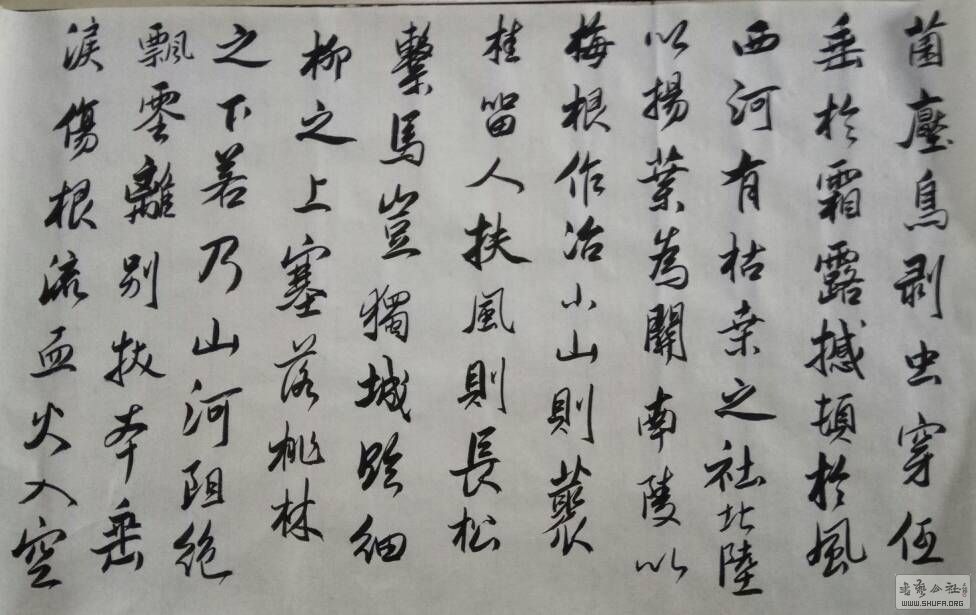 菌壓鳥剥虫穿低
垂於霜露撼頓於風
西河有枯桒之社北陸
以揚葉為關南陵以
梅根作冶小山則藂
桂留人扶風則長松
繫馬豈獨城臨細
柳之上塞落桃林
之下若乃山河阻絶
飄零離别拔本垂
淚傷根流血火入空
书艺公社
WWW.SHUFA.ORG